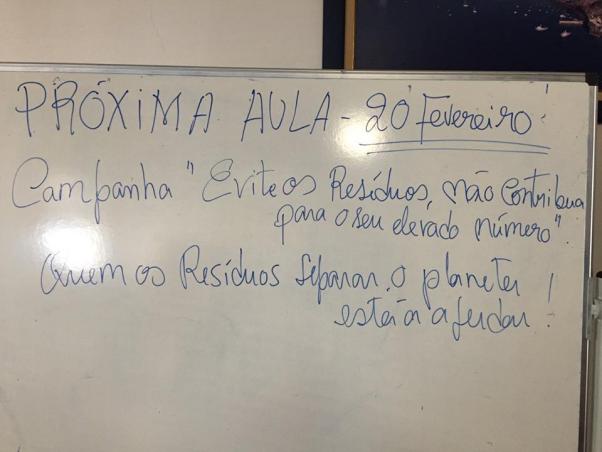 PRÓXIMA AULA - 20 Fevereiro!
Campanha "Evite os Resíduos, não contribua
para o seu elevado número".
Quem os Resíduos Separar, o planeta
estará a ajudar!